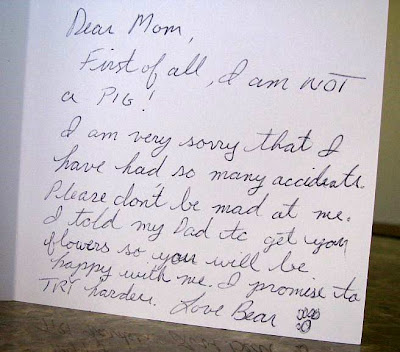 Dear Mom,
First of all, I am NOT
a PIG!
I am very sorry that I
have had so many accidents.
Please don't be mad at me.
I told my Dad to get you
flowers so you will be
happy with me. I promise to
TRY harder. Love Bear